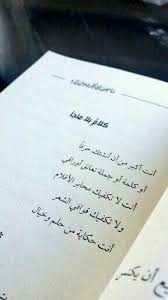 كلام بلا ملجأ
أنت أكبر من أن أكتبك حرفا
أو كلمة أو جملة تعانق أوراقي
أنت لا تكفيك محابر الأقلام
ولا تكفيك قوافي الشعر
أنت حكاية من حلم وخيال
أن يكسر